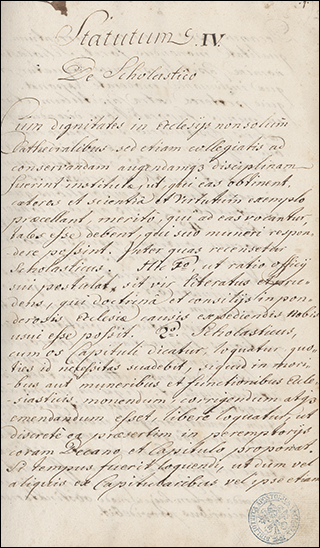 Statutum IV.
De Scholastico
Cum dignitates in Ecclesijs non solum
Cathedralibus sed etiam collegiatis ad
conservandam augendamq disciplinam
fuerint institutæ, ut qui eas obtinent,
cæteros et scientia et Virtutum exemplo
præcellant, merito, qui ad eas vocantur
tales esse debent, qui suo muneri respon-
dere possint. Inter quas recensetur
Scholasticus. Hic 1o, ut ratio officij
sui postulat, sit vir literatus et pru-
dens, qui doctrina et consilijs in pon-
derosis Ecclesiæ causis expediendis nobis
usui esse possit. 2o. Scholasticus,
cum os Capituli dicatur, loquatur quo-
ties id necessitas suadebit, siquid in mori-
bus aut muneribus et functionibus Eccle-
siasticis, monendum corrigendum atq
emendandum esset, libere loquatur, ut
discrete ea præsertim in peremptorijs
coram Decano, et Capitulo proponat.
Si tempus fuerit loquendi, ut dum vel
aliquis ex Capitularibus vel ipse etiam